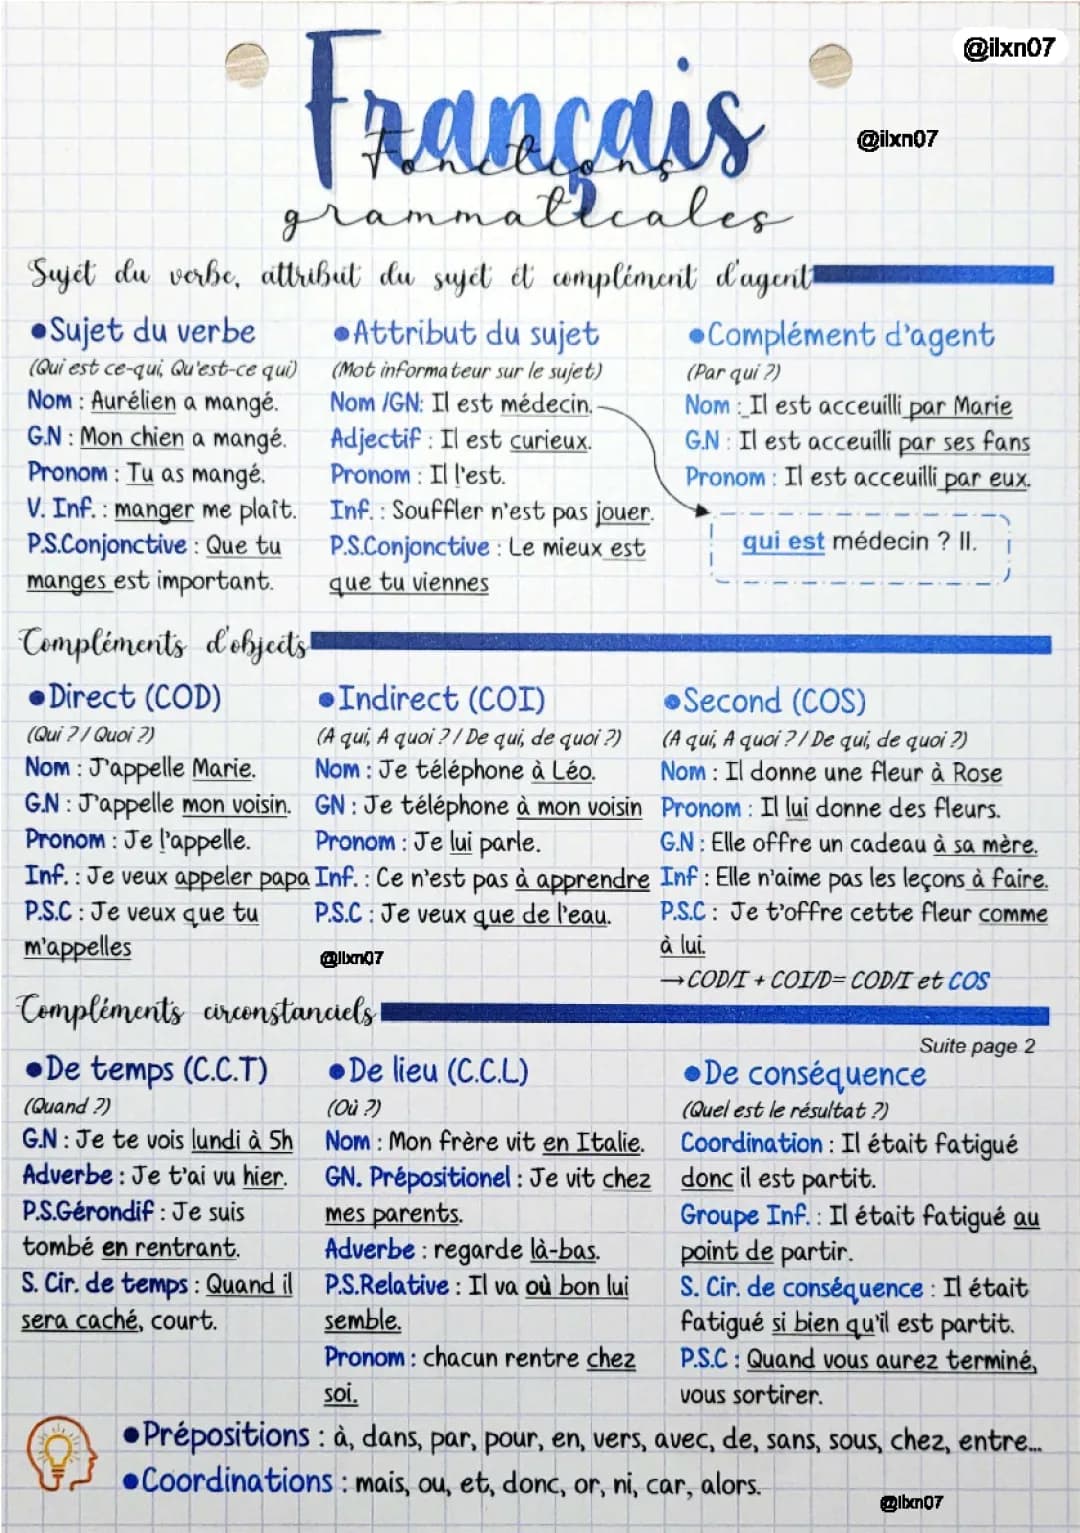 @ilxn07
Français
@ilxn07
Fonctions
grammaticales
Sujet du verbe, attribut du sujet et complément d'agent
•Sujet du verbe
(Qui est ce-qui, Qu'est-ce qui)
Nom : Aurélien a mangé.
G.N : Mon chien a mangé.
Pronom : Tu as mangé.
V. Inf. : manger me plaît.
P.S.Conjonctive : Que tu
manges est important.
•Attribut du sujet
(Mot informateur sur le sujet)
Nom /GN: Il est médecin.
Adjectif : Il est curieux.
Pronom : Il l'est.
Inf. : Souffler n'est pas jouer.
P.S.Conjonctive : Le mieux est
que tu viennes
•Complément d'agent
(Par qui ?)
Nom : Il est acceuilli par Marie
G.N : Il est acceuilli par ses fans
Pronom : Il est acceuilli par eux.
qui est médecin ? Il.
Compléments d'objects
•Direct (COD)
(Qui ? / Quoi ?)
Nom : J'appelle Marie.
G.N : J'appelle mon voisin.
Pronom : Je l'appelle.
Inf. : Je veux appeler papa
P.S.C : Je veux que tu
m'appelles
•Indirect (COI)
(A qui, A quoi ? / De qui, de quoi ?)
Nom : Je téléphone à Léo.
GN : Je téléphone à mon voisin
Pronom : Je lui parle.
Inf. : Ce n'est pas à apprendre
P.S.C : Je veux que de l'eau.
@ilxn07
•Second (COS)
(A qui, A quoi ? / De qui, de quoi ?)
Nom : Il donne une fleur à Rose
Pronom : Il lui donne des fleurs.
G.N : Elle offre un cadeau à sa mère.
Inf : Elle n'aime pas les leçons à faire.
P.S.C : Je t'offre cette fleur comme
à lui.
→COD/I + COI/D= COD/I et COS
Compléments circonstanciels
Suite page 2
•De temps (C.C.T)
(Quand ?)
G.N : Je te vois lundi à 5h
Adverbe : Je t'ai vu hier.
P.S.Gérondif : Je suis
tombé en rentrant.
S. Cir. de temps : Quand il
sera caché, court.
•De lieu (C.C.L)
(Où ?)
Nom : Mon frère vit en Italie.
GN. Prépositionel : Je vit chez
mes parents.
Adverbe : regarde là-bas.
P.S.Relative : Il va où bon lui
semble.
Pronom : chacun rentre chez
soi.
•De conséquence
(Quel est le résultat ?)
Coordination : Il était fatigué
donc il est partit.
Groupe Inf. : Il était fatigué au
point de partir.
S. Cir. de conséquence : Il était
fatigué si bien qu'il est partit.
P.S.C : Quand vous aurez terminé,
vous sortirer.
•Prépositions : à, dans, par, pour, en, vers, avec, de, sans, sous, chez, entre...
•Coordinations : mais, ou, et, donc, or, ni, car, alors.
@ilxn07